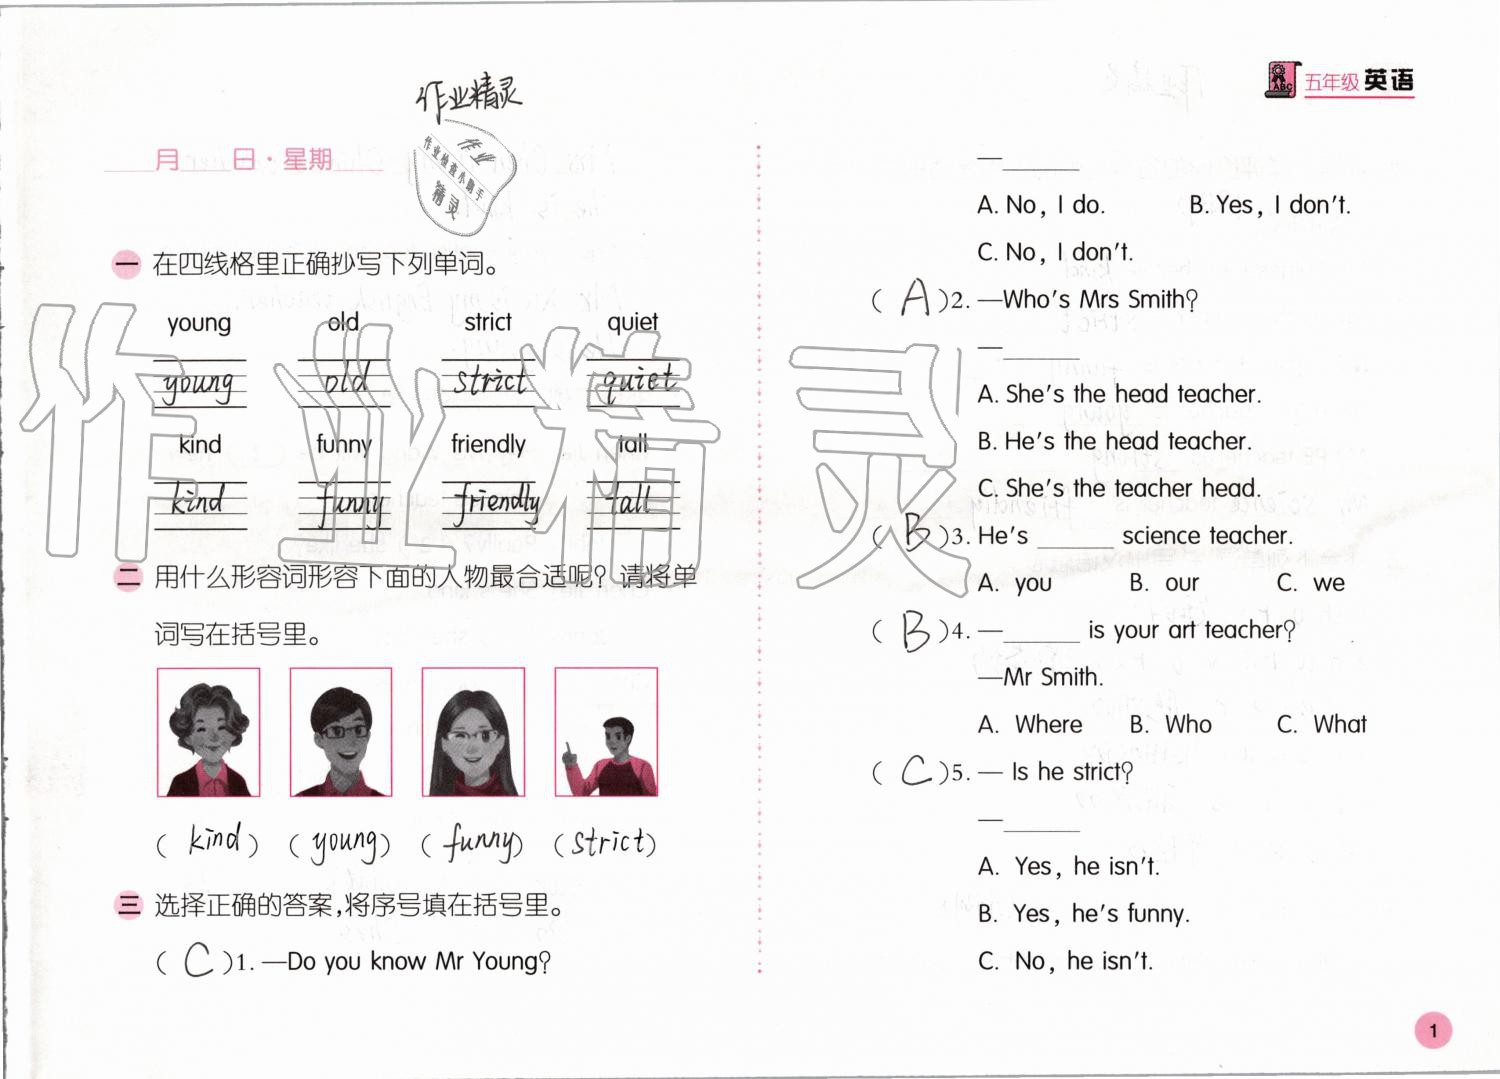 作业精灵
作业
作业检查小助手
精灵
五年级 英语
月 日·星期
一 在四线格里正确抄写下列单词。
young old strict quiet
young old strict quiet
kind funny friendly tall
kind funny friendly tall
二 用什么形容词形容下面的人物最合适呢？请将单
词写在括号里。
( kind ) ( young ) ( funny ) ( strict )
三 选择正确的答案,将序号填在括号里。
( C )1. —Do you know Mr Young?
—______
A. No, I do. B. Yes, I don't.
C. No, I don't.
( A )2. —Who's Mrs Smith?
—______
A. She's the head teacher.
B. He's the head teacher.
C. She's the teacher head.
( B )3. He's ______ science teacher.
A. you B. our C. we
( B )4. —______ is your art teacher?
—Mr Smith.
A. Where B. Who C. What
( C )5. — Is he strict?
—______
A. Yes, he isn't.
B. Yes, he's funny.
C. No, he isn't.
1
作业精灵